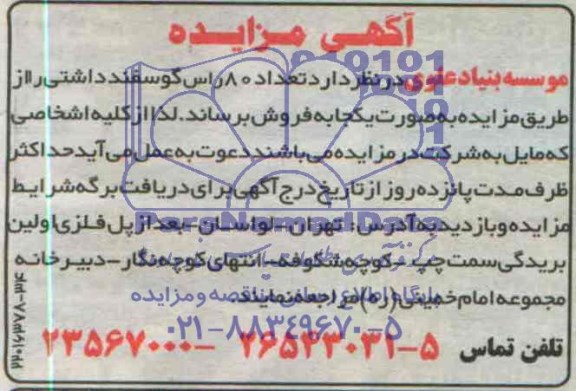 آگهی مزایده
موسسه بنیاد علوی در نظر دارد تعداد ۸۰ راس گوسفند داشتی را از
طریق مزایده به صورت یکجا به فروش برساند. لذا از کلیه اشخاصی
که مایل به شرکت در مزایده می باشند دعوت به عمل می آید حداکثر
ظرف مدت پانزده روز از تاریخ درج آگهی برای دریافت برگه شرایط
مزایده و بازدید به آدرس: تهران-لواسان-بعد از پل فلزی اولین
بریدگی سمت چپ-کوچه شکوفه-انتهای کوچه نگار-دبیرخانه
مجموعه امام خمینی(ره) مراجعه نمایند.
تلفن تماس ۵-۲۶۵۲۳۰۳۱ -۲۳۵۶۷۰۰۰
ParsNamadData
۰۲۱-۸۸۳۴۹۶۷۰-۵